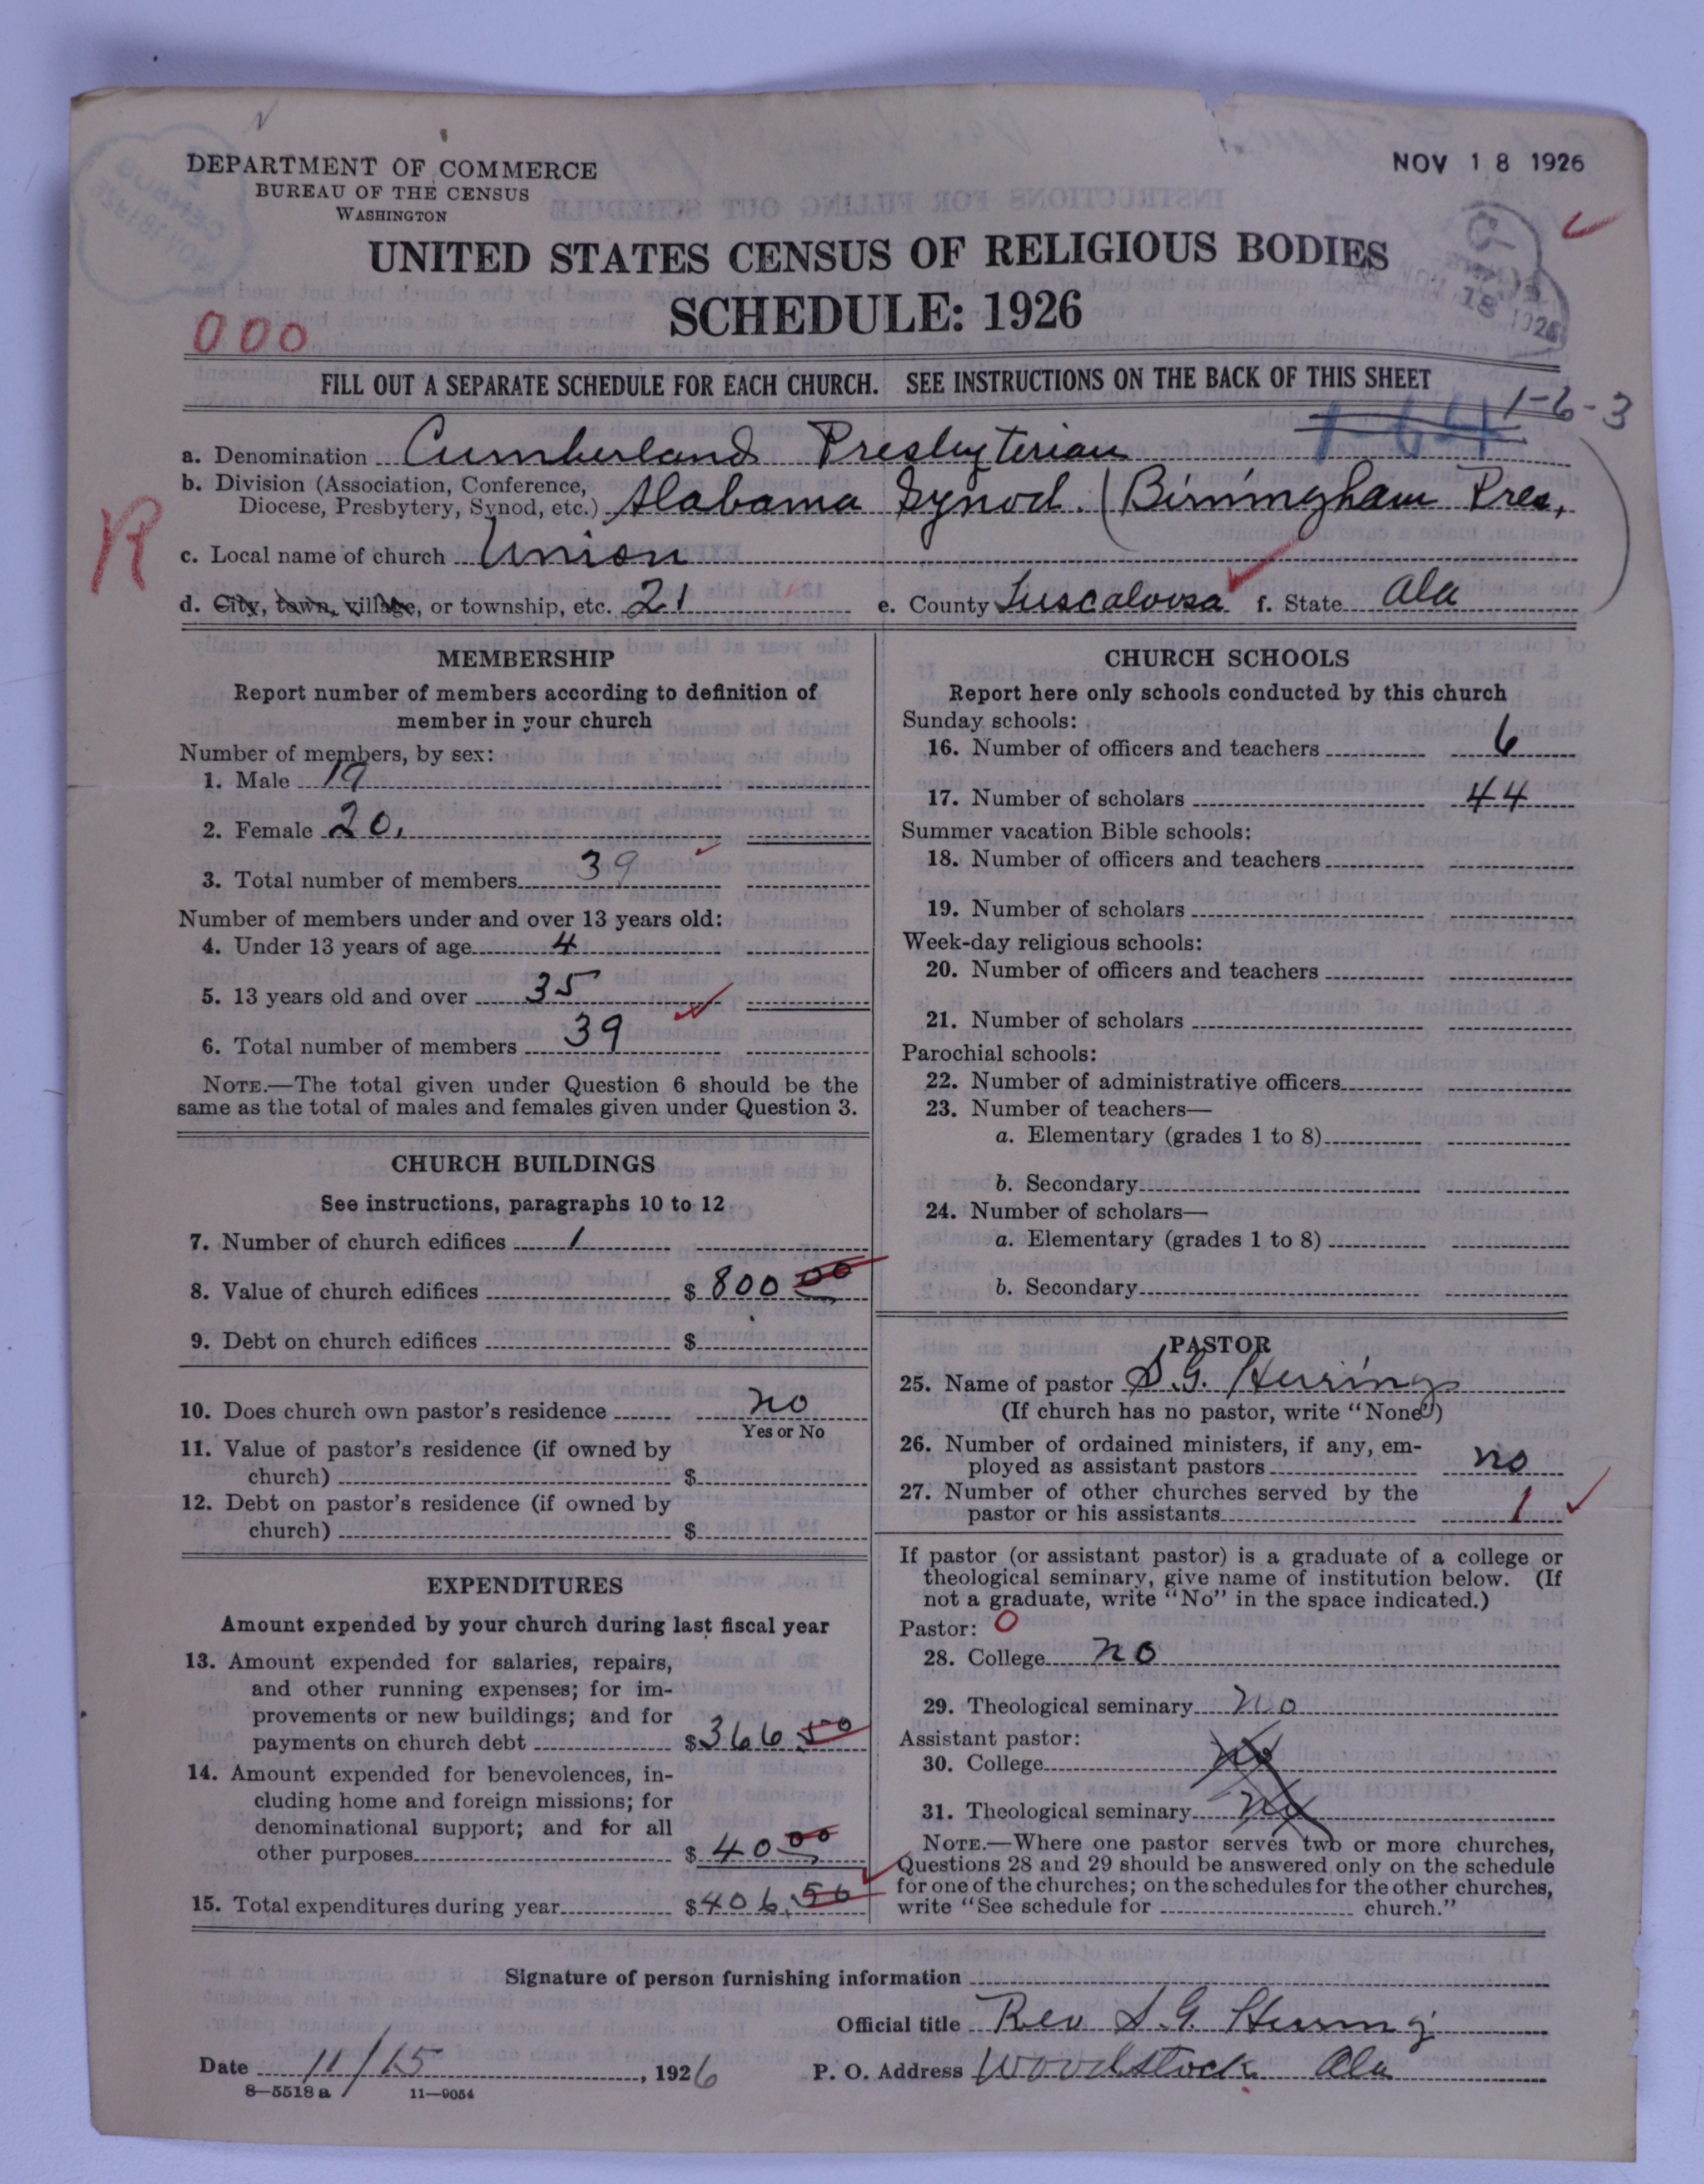 DEPARTMENT OF COMMERCE
BUREAU OF THE CENSUS
WASHINGTON
NOV 18 1926
UNITED STATES CENSUS OF RELIGIOUS BODIES
SCHEDULE: 1926
000
FILL OUT A SEPARATE SCHEDULE FOR EACH CHURCH. SEE INSTRUCTIONS ON THE BACK OF THIS SHEET
1-64 1-6-3
a. Denomination Cumberland Presbyterian
b. Division (Association, Conference,
Diocese, Presbytery, Synod, etc.) Alabama Synod. (Birmingham Pres,)
R
c. Local name of church Union
d. City, town, village, or township, etc. 21 e. County Tuscaloosa f. State Ala
MEMBERSHIP
Report number of members according to definition of
member in your church
Number of members, by sex:
1. Male 19
2. Female 20.
3. Total number of members 39
Number of members under and over 13 years old:
4. Under 13 years of age 4
5. 13 years old and over 35
6. Total number of members 39
NOTE.—The total given under Question 6 should be the
same as the total of males and females given under Question 3.
CHURCH BUILDINGS
See instructions, paragraphs 10 to 12
7. Number of church edifices 1
8. Value of church edifices $ 800 00
9. Debt on church edifices $
10. Does church own pastor's residence no
Yes or No
11. Value of pastor's residence (if owned by
church) $
12. Debt on pastor's residence (if owned by
church) $
EXPENDITURES
Amount expended by your church during last fiscal year
13. Amount expended for salaries, repairs,
and other running expenses; for im-
provements or new buildings; and for
payments on church debt $366 50
14. Amount expended for benevolences, in-
cluding home and foreign missions; for
denominational support; and for all
other purposes $ 40 00
15. Total expenditures during year $406.50
CHURCH SCHOOLS
Report here only schools conducted by this church
Sunday schools:
16. Number of officers and teachers 6
17. Number of scholars 44
Summer vacation Bible schools:
18. Number of officers and teachers
19. Number of scholars
Week-day religious schools:
20. Number of officers and teachers
21. Number of scholars
Parochial schools:
22. Number of administrative officers
23. Number of teachers—
a. Elementary (grades 1 to 8)
b. Secondary
24. Number of scholars—
a. Elementary (grades 1 to 8)
b. Secondary
PASTOR
25. Name of pastor S.G. Herring
(If church has no pastor, write "None")
26. Number of ordained ministers, if any, em-
ployed as assistant pastors no
27. Number of other churches served by the
pastor or his assistants 1
If pastor (or assistant pastor) is a graduate of a college or
theological seminary, give name of institution below. (If
not a graduate, write "No" in the space indicated.)
Pastor: 0
28. College no
29. Theological seminary no
Assistant pastor:
30. College no
31. Theological seminary no
NOTE.—Where one pastor serves two or more churches,
Questions 28 and 29 should be answered only on the schedule
for one of the churches; on the schedules for the other churches,
write "See schedule for church."
Signature of person furnishing information
Official title Rev S.G. Herring
Date 11/15, 1926 P. O. Address Woodstock Ala
8—5518 a 11—9054